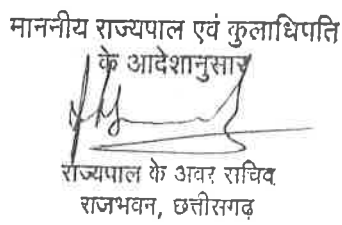 माननीय राज्यपाल एवं कुलाधिपति
के आदेशानुसार
राज्यपाल के अवर सचिव
राजभवन, छत्तीसगढ़